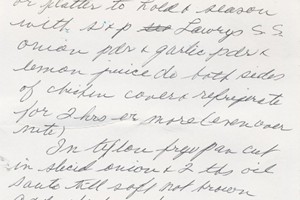 or platter to hold & season
with s & p Lawrys S.S
onion pdr & garlic pdr &
lemon juice do both sides
of chicken cover & refrigerate
for 2 hrs or more (even over
nite)
In teflon frypan cut
in sliced onion & 2 tbs oil
saute till soft not brown